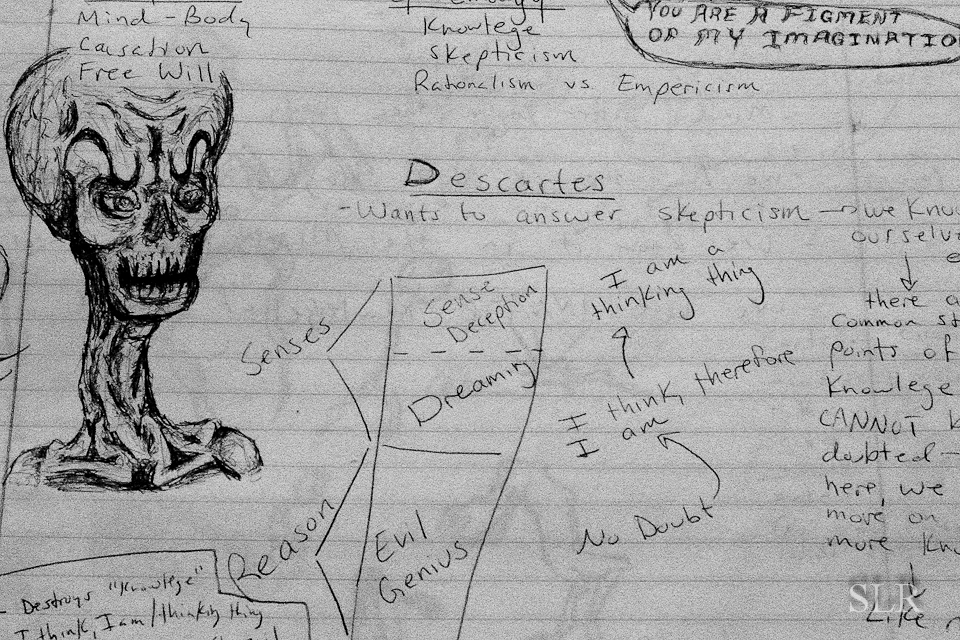 Mind-Body
Causation
Free Will
Knowlege
Skepticism
Rationalism vs Empericism
YOU ARE A FIGMENT
OF MY IMAGINATIO
Descartes
-Wants to answer skepticism → we Know
ourselve
Senses
Sense
Deception
Dreaming
Reason
Evil
Genius
I am a
thinking thing
I think, therefore
I am
No Doubt
there a
Common st
points of
Knowlege
CANNOT b
doubted-
here, we
move on
more Kno
Like
- Destroys "Knowlege"
I think, I am/thinking thing
SLR